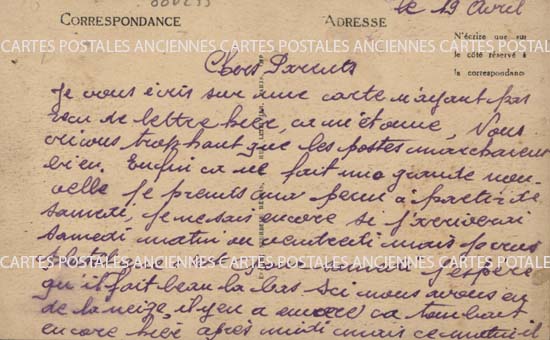 le 19 Avril
CORRESPONDANCE
ADRESSE
N'écrire que sur
le côté réservé à
la correspondance
CARTES POSTALES ANCIENNES CARTES POSTALES ANCIENNES CARTES POSTALES ANCIENNES
Chers Parents
Je vous écris sur une carte n'ayant pas
recu de lettre hier, ca m'étonne, Vous
criions trop haut que les postes marchaient
bien. Enfin ca ne fait une grande nou-
velle je prends aux perm à partir de
samedi, je ne sais encore si j'arriverai
samedi matin ou vendredi mais
CARTES POSTALES ANCIENNES CARTES POSTALES ANCIENNES CARTES POSTALES ANCIENNES
j'espère
qu'il fait beau la bas. Ici nous avons eu
de la neige, il y en a encore ca tombait
encore hier après midi mais ce matin il